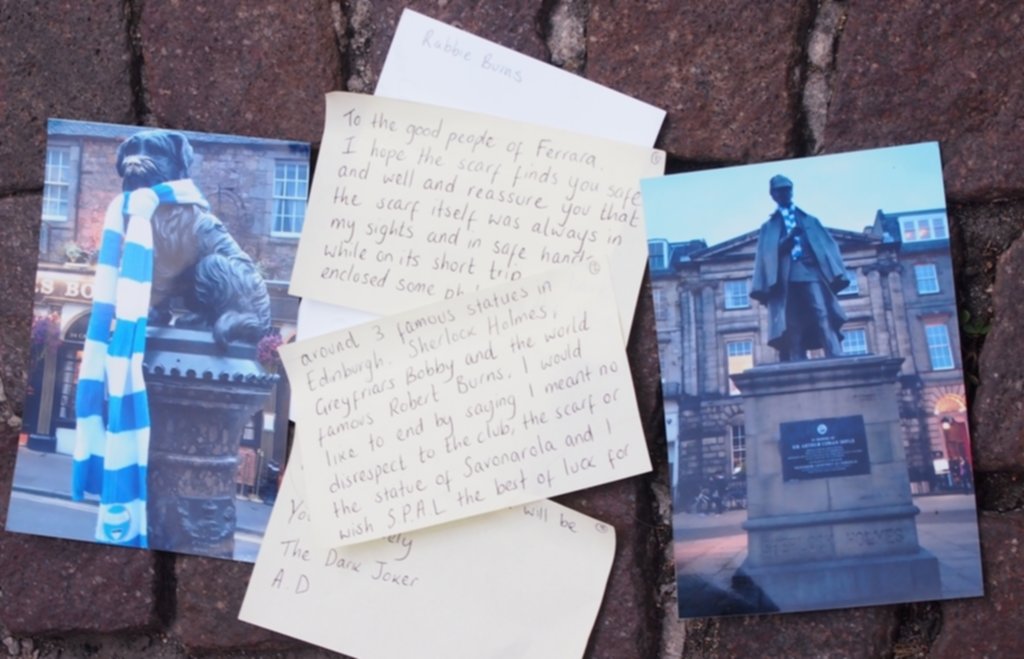 Rabbie Burns
To the good people of Ferrara.
I hope the scarf finds you safe
and well and reassure you that
the scarf itself was always in
my sights and in safe hands
while on its short trip
enclosed some
around 3 famous statues in
Edinburgh. Sherlock Holmes,
Greyfriars Bobby and the world
famous Robert Burns. I would
like to end by saying I meant no
disrespect to the club, the scarf or
the statue of Savonarola and I
wish S.P.A.L the best of luck for
will be
The Dark Joker
A.D
BO
SIR ARTHUR CONAN DOYLE
HOLMES